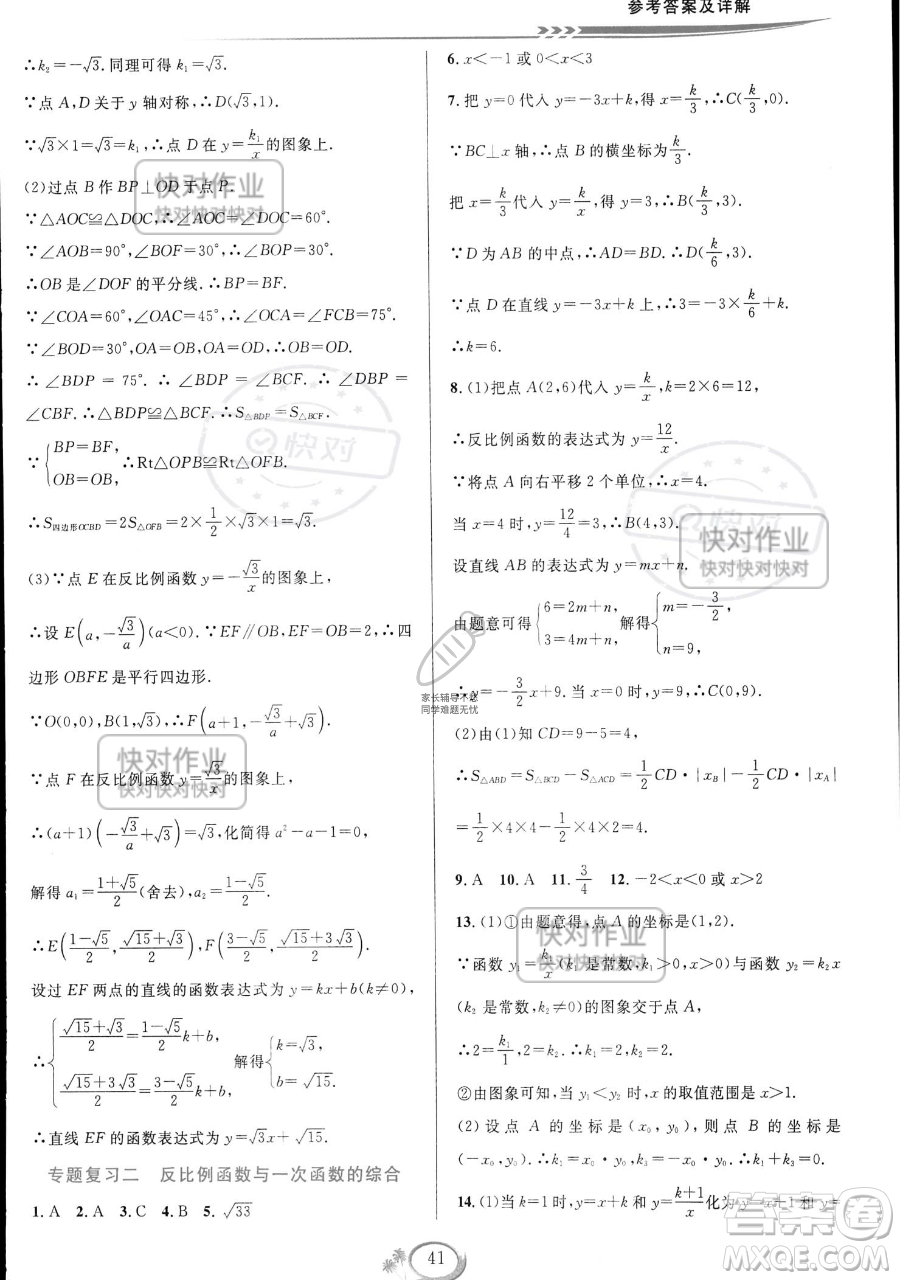 参考答案及详解
∴k₂=-√3.同理可得 k₁=√3.
∵点 A,D 关于 y 轴对称,∴D(√3,1).
∵√3×1=√3=k₁,∴点 D 在 y=k₁/x 的图象上.
(2)过点 B 作 BP⊥OD 于点 P.
∵△AOC≌△DOC,∴∠AOC=∠DOC=60°.
∵∠AOB=90°,∠BOF=30°,∴∠BOP=30°.
∴OB 是∠DOF 的平分线.
∵∠COA=60°,∠OAC=45°,∴∠OCA=∠FCB=75°.
∵∠BOD=30°,OA=OB,OA=OD,∴OB=OD.
∴∠BDP=75°.∴∠BDP=∠BCF.∴∠DBP=
∠CBF.∴△BDP≌△BCF.∴S△BDP=S△BCF.
∵{BP=BF, OB=OB, ∴Rt△OPB≌Rt△OFB.
∴S四边形OCBD=2S△OFB=2×1/2×√3×1=√3.
(3)∵点 E 在反比例函数 y=-√3/x 的图象上,
∴设 E(a,-√3/a)(a<0).∵EF∥OB,EF=OB=2,∴四
边形 OBFE 是平行四边形.
∵O(0,0),B(1,√3),∴F(a+1,-√3/a+√3).
∵点 F 在反比例函数 y=√3/x 的图象上,
∴(a+1)(-√3/a+√3)=√3,化简得 a²-a-1=0,
解得 a₁=(1+√5)/2(舍去),a₂=(1-√5)/2.
∴E((1-√5)/2,(√15+√3)/2),F((3-√5)/2,(√15+3√3)/2).
设过 EF 两点的直线的函数表达式为 y=kx+b(k≠0),
∴{(√15+√3)/2=(1-√5)/2 k+b, (√15+3√3)/2=(3-√5)/2 k+b, 解得{k=√3, b=√15.
∴直线 EF 的函数表达式为 y=√3x+√15.
专题复习二 反比例函数与一次函数的综合
1. A 2. A 3. C 4. B 5. √33
6. x<-1 或 0<x<3
7. 把 y=0 代入 y=-3x+k,得 x=k/3,∴C(k/3,0).
∵BC⊥x 轴,∴点 B 的横坐标为 k/3.
把 x=k/3 代入 y=k/x,得 y=3,∴B(k/3,3).
∵D 为 AB 的中点,∴AD=BD.∴D(k/6,3).
∵点 D 在直线 y=-3x+k 上,∴3=-3×k/6+k.
∴k=6.
8. (1)把点 A(2,6)代入 y=k/x,k=2×6=12,
∴反比例函数的表达式为 y=12/x.
∵将点 A 向右平移 2 个单位,∴x=4.
当 x=4 时,y=12/4=3,∴B(4,3).
设直线 AB 的表达式为 y=mx+n.
由题意可得{6=2m+n, 3=4m+n, 解得{m=-3/2, n=9,
∴y=-3/2x+9.
(2)由(1)知 CD=9-5=4,
∴S△ABD=S△BCD-S△ACD=1/2CD·|x_B|-1/2CD·|x_A|
=1/2×4×4-1/2×4×2=4.
9. A 10. A 11. 3/4 12. -2<x<0 或 x>2
13. (1)①由题意得,点 A 的坐标是(1,2).
∵函数 y₁=k₁/x(k₁ 是常数,k₁>0)与函数 y₂=k₂x
(k₂ 是常数,k₂>0)的图象交于点 A,
∴2=k₁/1,2=k₂.∴k₁=2,k₂=2.
②由图象可知,当 y₁<y₂ 时,x 的取值范围是 x>1.
(2)设点 A 的坐标是(x₀,y₀),则点 B 的坐标是
(-x₀,-y₀).
14. (1)当 k=1 时,y=x+k 和 y=(k+1)/x 化为 y=x+1 和
41
快对作业
快对快对快对
快对作业
快对快对快对
快对作业
快对快对快对
快对作业
快对快对快对
快对
快对
家长辅导不愁
同学难题无忧
答案圈
MXQE.COM